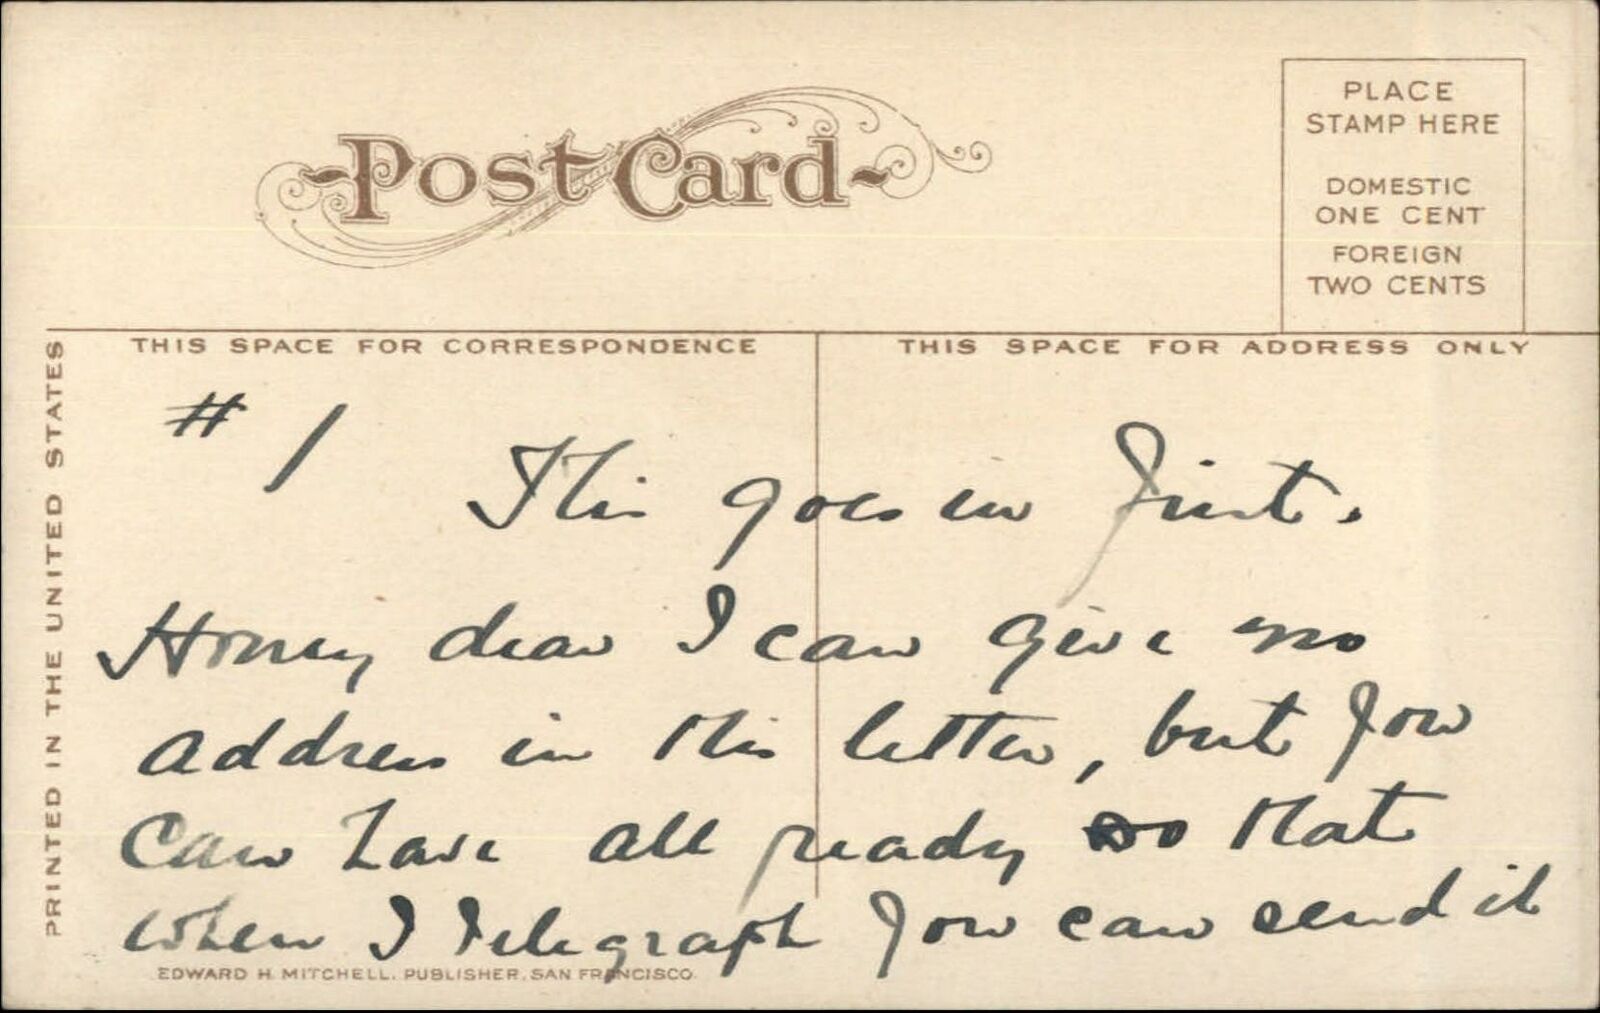 Post Card
PLACE
STAMP HERE
DOMESTIC
ONE CENT
FOREIGN
TWO CENTS
THIS SPACE FOR CORRESPONDENCE
THIS SPACE FOR ADDRESS ONLY
PRINTED IN THE UNITED STATES
# 1
This goes in first.
Honey dear I can give no
address in this letter, but you
can have all ready so that
when I telegraph you can send it
EDWARD H. MITCHELL, PUBLISHER, SAN FRANCISCO.